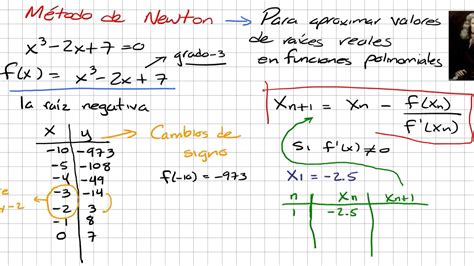 Método de Newton → Para aproximar valores
de raíces reales
en funciones polinomiales
x³-2x+7=0
grado-3
f(x) = x³-2x+7
la raíz negativa
x y
-10 -973
-5 -108
-4 -49
-3 -14
-2 3
-1 8
0 7
→ Cambios de
signo
f(-10) = -973
y-2
Xn+1 = Xn - f(Xn)/f'(Xn)
Si f'(x) ≠ 0
X1 = -2.5
n Xn Xn+1
1 -2.5